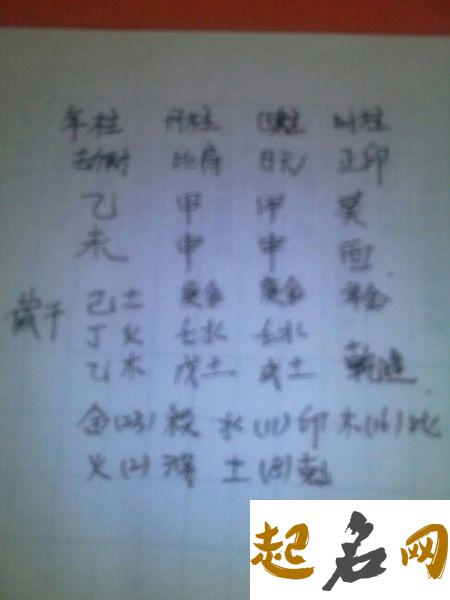 年柱 月柱 日柱 时柱
劫财 比肩 日元 正印
乙 甲 甲 癸
未 申 申 酉
藏干 己土 庚金 庚金 辛金
丁火 壬水 壬水
乙木 戊土 戊土 乾造
金(23)杀 水(11)印 木(16)比
火(2) 土(8)
起名网